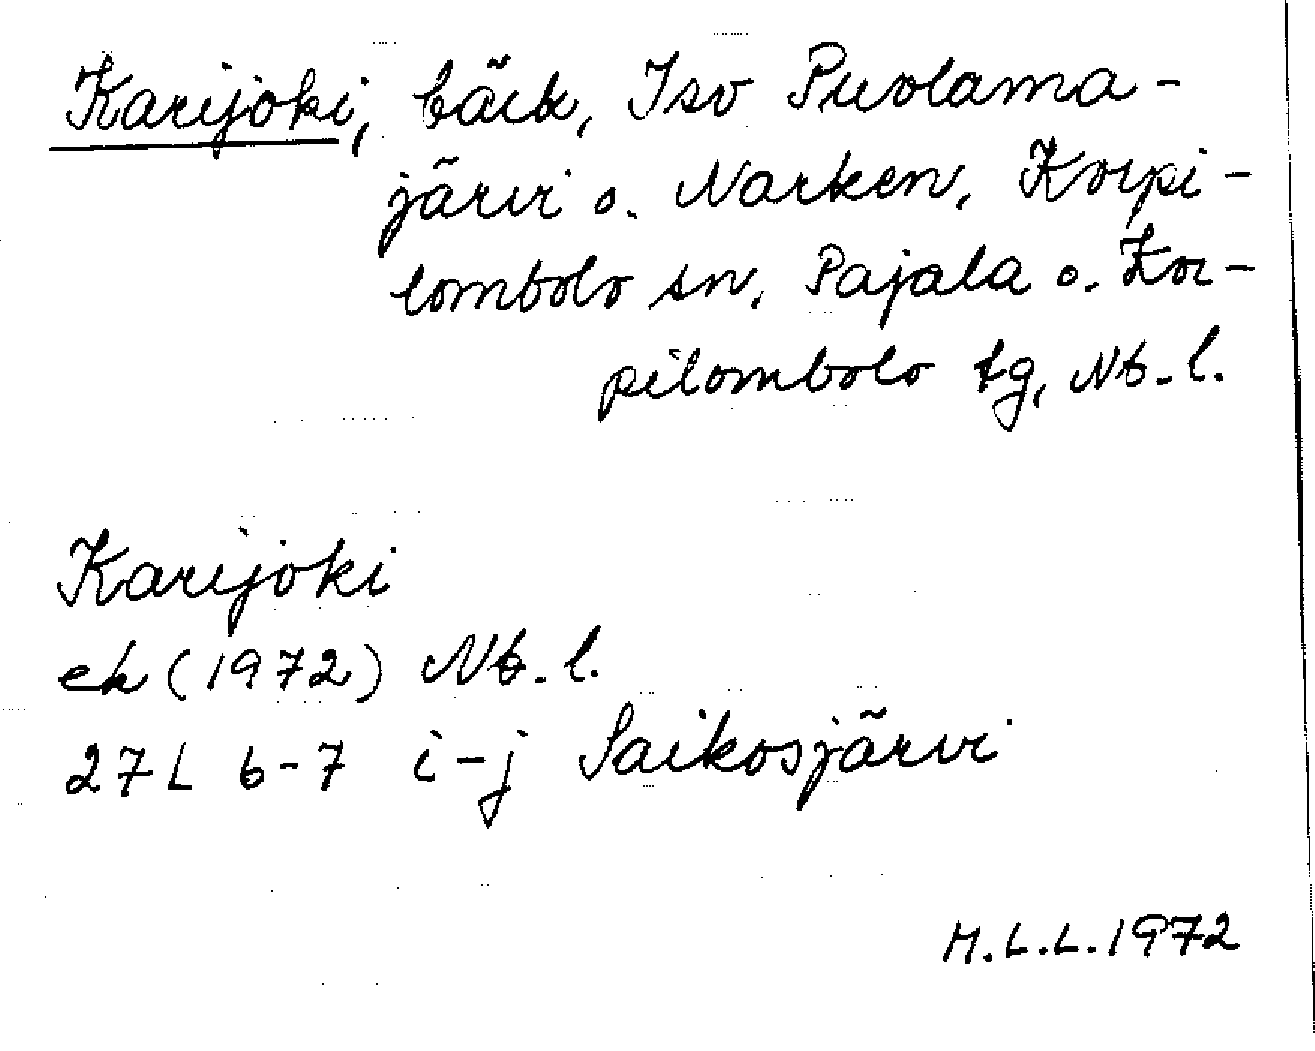 Karijoki, bäck, Iso Puolama-
järvi o. Narken, Korpi-
lombolo sn, Pajala o. Kor-
pilombolo tg, Nb. l.
Karijoki
ek (1972) Nb. l.
27L 6-7 i-j Saikosjärvi
M.L.L. 1972